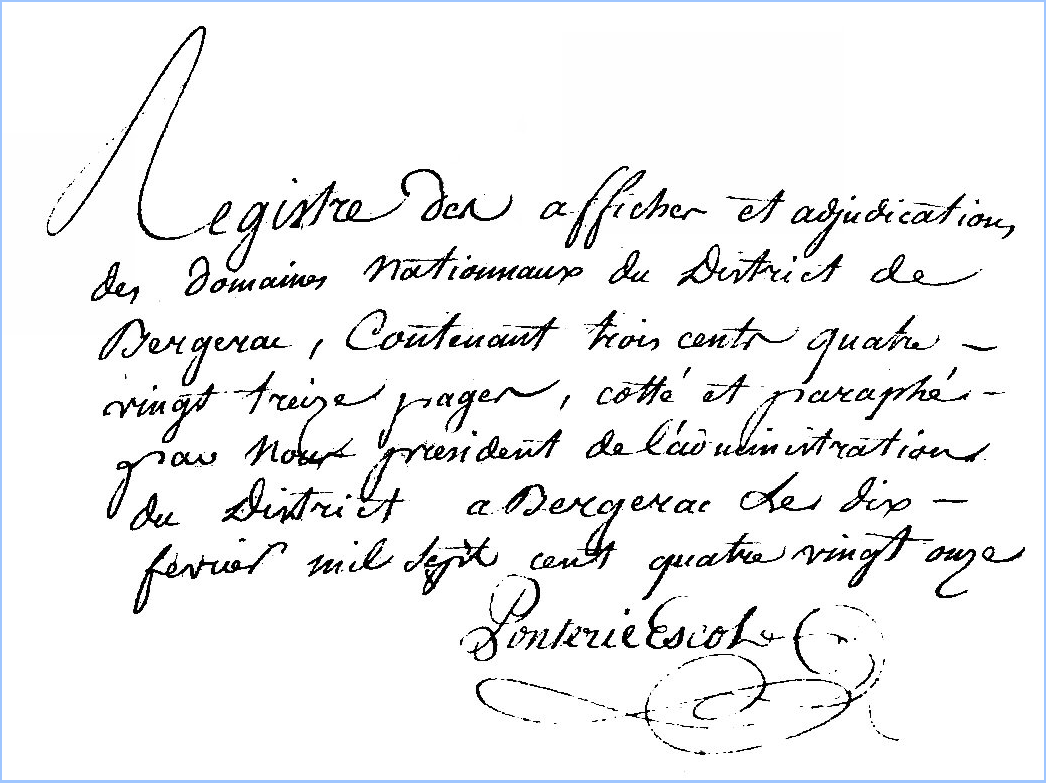 Registre des affiches et adjudications
des domaines nationnaux du District de
Bergerac, Contenant trois cents quatre -
vingt treize pages, cotté et paraphé -
par nous président de l'administration
du District a Bergerac Le dix -
fevrier mil sept cent quatre vingt onze
Ponterie Escot